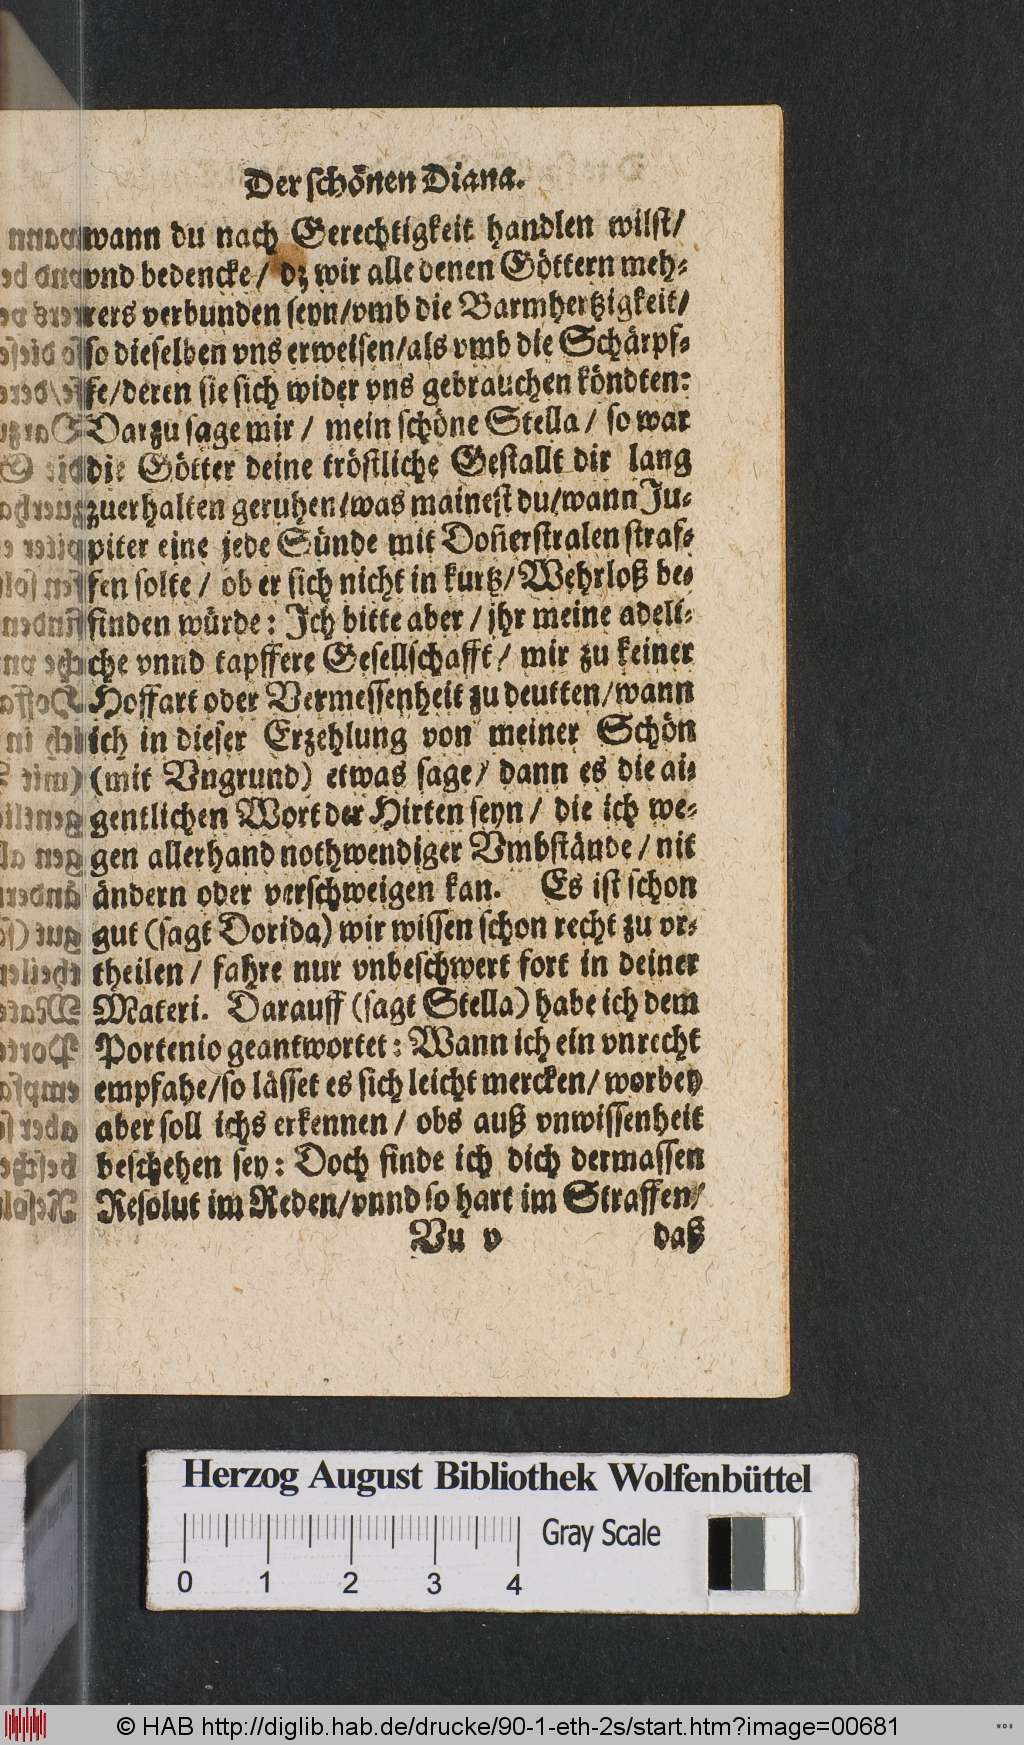 Der schönen Diana.
wann du nach Gerechtigkeit handlen wilst/
vnd bedencke/ dz wir alle denen Göttern meh-
rers verbunden seyn/vmb die Barmhertzigkeit/
so dieselben vns erweisen/als vmb die Schärpf-
fe/deren sie sich wider vns gebrauchen köndten:
Darzu sage mir/ mein schöne Stella/ so war
die Götter deine tröstliche Gestallt dir lang
zuerhalten geruhen/was mainest du/wann Ju-
piter eine jede Sünde mit Doñerstralen straf-
fen solte/ ob er sich nicht in kurtz/ Wehrloß be-
finden würde: Ich bitte aber/ jhr meine adeli-
che vnnd tapffere Gesellschafft/ mir zu keiner
Hoffart oder Vermessenheit zu deutten/wann
ich in dieser Erzehlung von meiner Schön
(mit Vngrund) etwas sage/ dann es die ai-
gentlichen Wort der Hirten seyn/ die ich we-
gen allerhand nothwendiger Vmbstände/ nit
ändern oder verschweigen kan. Es ist schon
gut (sagt Dorida) wir wissen schon recht zu vr-
theilen/ fahre nur vnbeschwert fort in deiner
Materi. Darauff (sagt Stella) habe ich dem
Portenio geantwortet: Wann ich ein vnrecht
empfahe/so lässet es sich leicht mercken/ worbey
aber soll ichs erkennen/ obs auß vnwissenheit
beschehen sey: Doch finde ich dich dermassen
Resolut im Reden/vnnd so hart im Straffen/
Vu v daß
Herzog August Bibliothek Wolfenbüttel
Gray Scale
0 1 2 3 4
© HAB http://diglib.hab.de/drucke/90-1-eth-2s/start.htm?image=00681